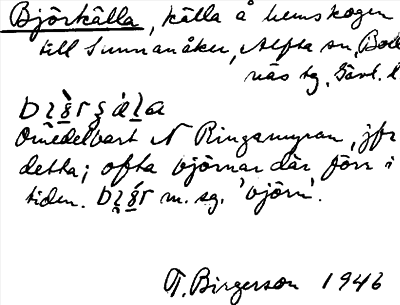 Björkälla, källa å hemskogen
till Sunnanåker, Alfta sn, Boll
näs tg, Gävl. l
Omedelbart N Ringamyran, jfr
detta; ofta björnar där förr i
tiden. m. sg. 'björn'.
T. Birgerson 1946